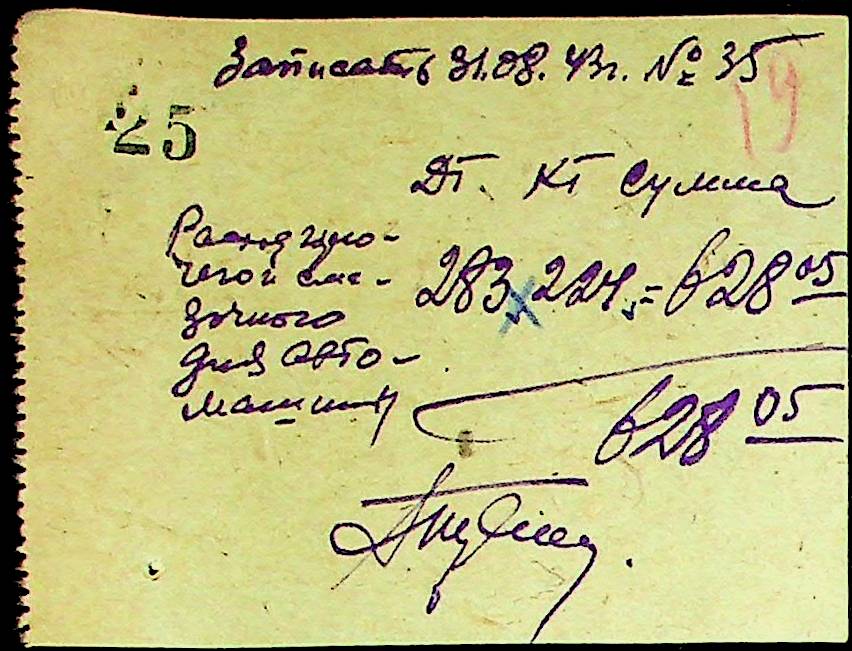 Записать 31.08.43г. № 35
25
19
Дт. Кт Сумма
Расход горю-
чего и сма-
зочного
для авто-
машины
283 224,= 628 05
628 05